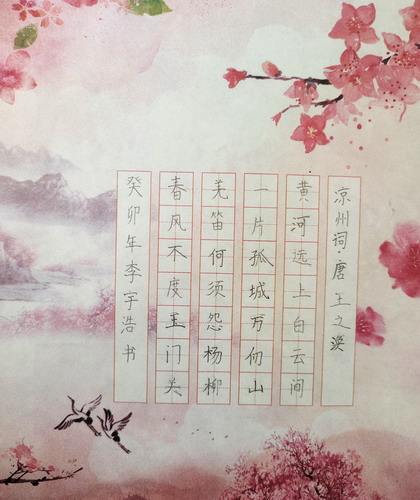 凉州词·唐王之涣
黄河远上白云间
一片孤城万仞山
羌笛何须怨杨柳
春风不度玉门关
癸卯年李宇浩书